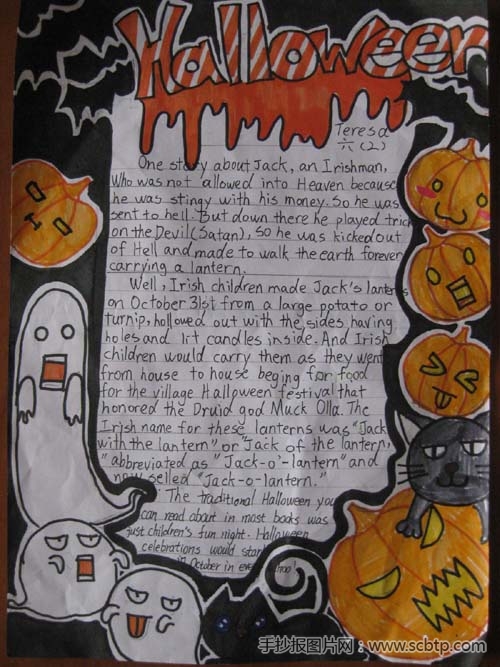 Halloween
Teresa
六(2)
One story about Jack, an Irishman,
who was not allowed into Heaven because
he was stingy with his money. So he was
sent to hell. But down there he played trick
on the Devil(Satan), So he was kicked out
of Hell and made to walk the earth forever
carrying a lantern.
Well, Irish children made Jack's
on October 31st from a large potato or
turnip, hollowed out with the sides having
holes and lit candles inside. And Irish
children would carry them as they went
from house to house beging for food
for the village Halloween festival that
honored the Druid god Muck Olla. The
Irish name for these lanterns was "Jack
with the lantern" or "Jack of the lantern,
" abbreviated as " Jack-o'-lantern" and
now selled "Jack-o-lantern."
The traditional Halloween you
can read about in most books was
just children's fun night. Halloween
celebrations would start
October in every
手抄报图片网:www.scbtp.com